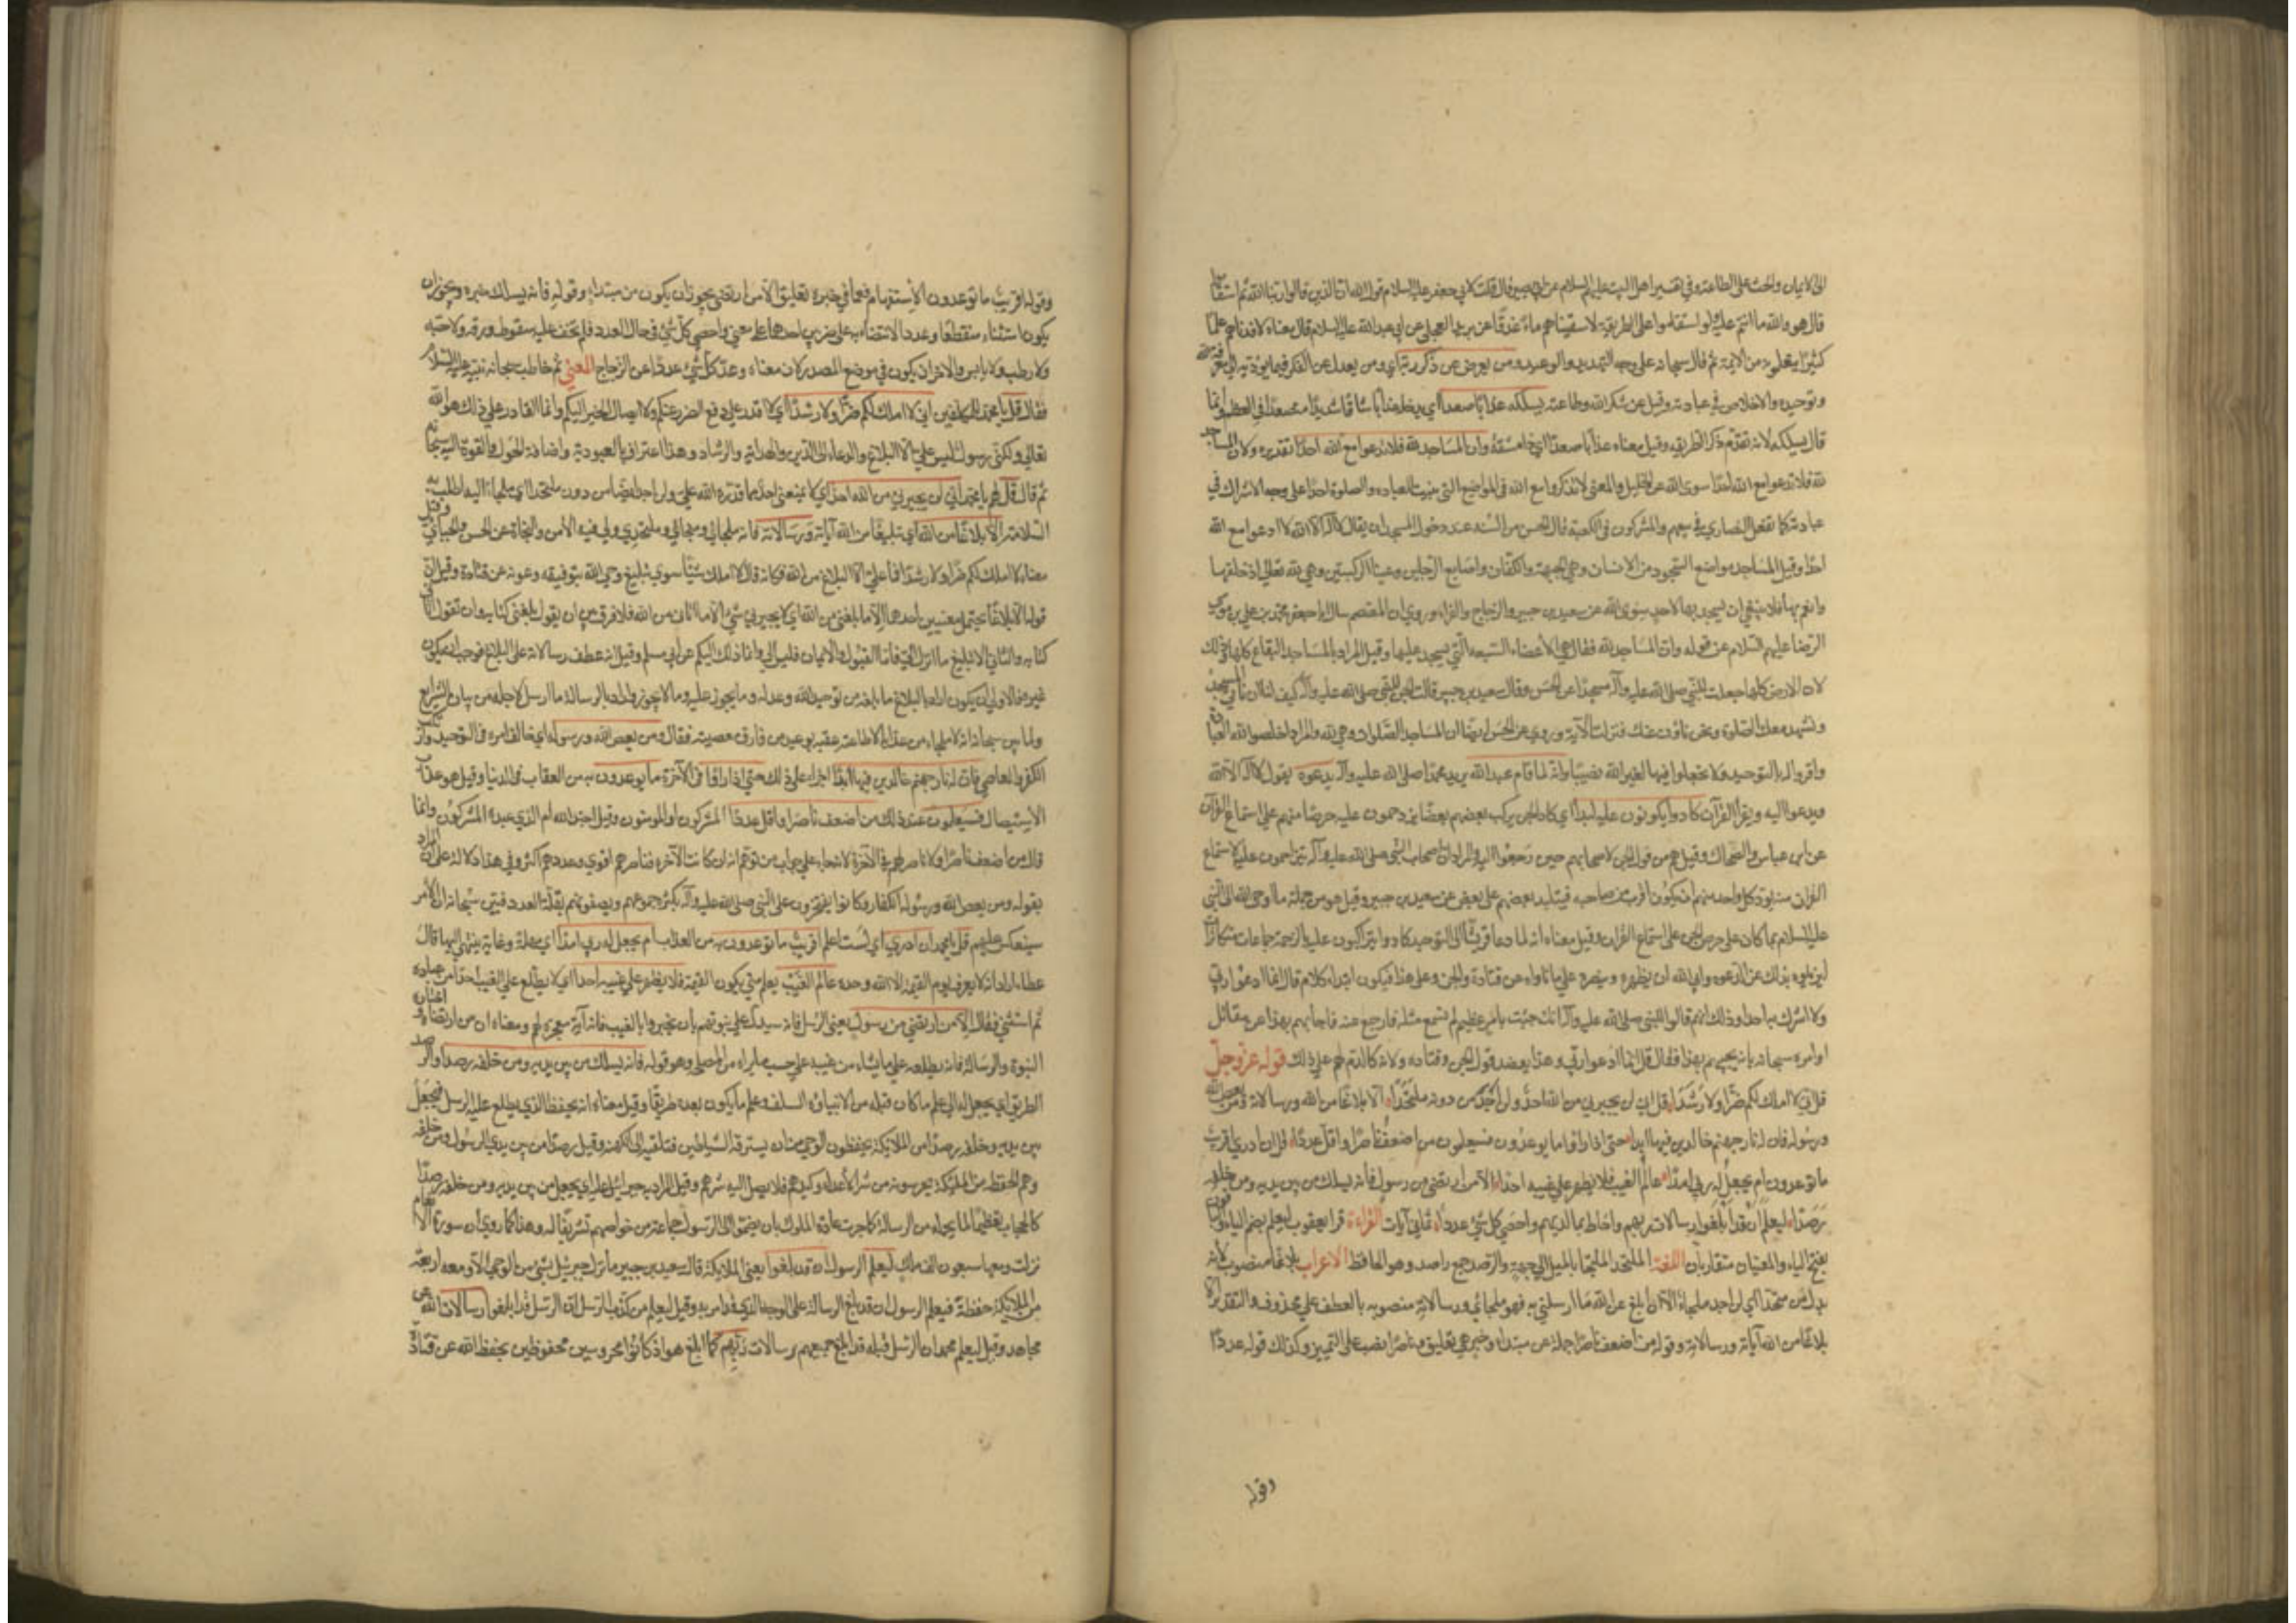 الى الايمان والحث على الطاعة وفي تفسير اهل البيت عليهم السلام عن ابي بصير قال قلت لابي جعفر عليه السلام قول الله ان الذين قالوا ربنا الله ثم استقاموا
قال هو والله ما انتم عليه لو استقاموا على الطريقة لاسقيناهم ماء غدقا وعن بريد العجلي عن ابي عبد الله عليه السلام قال معناه لافدناهم علما
كثيرا يتعلمونه من الايمة ثم قال سبحانه على وجه التهديد والوعيد ومن يعرض عن ذكر ربه اي ومن يعدل عن الفكر فيما يؤديه الى معرفة الله
وتوحيده والاخلاص في عبادته وقيل عن شكر الله وطاعته يسلكه عذابا صعدا اي يدخله عذابا شاقا شديدا متصعدا في العظم وانما
قال يسلكه لانه تقدم ذكر الطريقة وقيل معناه عذابا صعدا اي ذا مشقة وان المساجد لله فلا تدعوا مع الله احدا تقديره ولان المساجد
لله فلا تدعوا مع الله احدا سوى الله عن الخليل والمعنى لا تذكروا مع الله في المواضع التي بنيت للعباده والصلوة احدا على وجه الاشراك في
عبادته كما تفعل النصارى في بيعهم والمشركون في الكعبة قال الحسن من السنة عند دخول المسجد ان يقال لا اله الا الله لا ادعوا مع الله
احدا وقيل المساجد مواضع السجود من الانسان وهي الجبهة والكفان واصابع الرجلين وعينا الركبتين وهي لله تعالى اذ خلقها
وانعم بها فلا ينبغي ان يسجد بها لاحد سوى الله عن سعيد بن جبير والزجاج والفراء وروي ان المعتصم سال ابا جعفر محمد بن علي بن موسى
الرضا عليهم السلام عن قوله وان المساجد لله فقال هي الاعضاء السبعة التي يسجد عليها وقيل المراد بالمساجد البقاع كلها وذلك
لان الارض كلها جعلت للنبي صلى الله عليه وآله مسجدا عن الحسن وقال سعيد بن جبير قالت الجن للنبي صلى الله عليه وآله كيف لنا ان ناتي المسجد
ونشهد معك الصلوة ونحن ناؤن عنك فنزلت الآية وروي عن الحسن ايضا ان المساجد الصلوات وهي لله والمراد اخلصوا لله العبادة
واقروا له بالتوحيد ولا تجعلوا فيها لغير الله نصيبا وانه لما قام عبد الله يريد محمدا صلى الله عليه وآله يدعوه بقول لا اله الا الله
ويدعوا اليه ويقرأ القرآن كادوا يكونون عليه لبدا اي كاد الجن يركب بعضهم بعضا يزدحمون عليه حرصا منهم على استماع القرآن
عن ابن عباس والضحاك وقيل هو من قول الجن لاصحابهم حين رجعوا اليهم والمراد ان اصحاب النبي صلى الله عليه وآله يتزاحمون عليه لاستماع
القران منه يود كل واحد منهم ان يكون اقرب من صاحبه فيتلبد بعضهم على بعض عن سعيد بن جبير وقيل هو من جملة ما اوحى الله الى النبي
عليه السلام بما كان على حرص الجن على استماع القران وقيل معناه انه لما دعا قريشا الى التوحيد كادوا يتراكبون عليه بالزحمة جماعات متكاثرات
ليزيلوه بذلك عن الدعوه وابى الله الا ان يظهره وينصره على من ناواه عن قتادة والحسن وعلى هذا فيكون ابتداء كلام قال انما ادعوا ربي
ولا اشرك به احدا وذلك انهم قالوا للنبي صلى الله عليه وآله انك جئت بامر عظيم لم نسمع مثله فارجع عنه فاجابهم بهذا عن مقاتل
او امره سبحانه بانه يجيبهم بهذا فقال قل انما ادعوا ربي وهذا يعضد قول الحسن وقتاده ولانه كالذم لهم على ذلك قوله عز وجل
قل اني لا املك لكم ضرا ولا رشدا قل اني لن يجيرني من الله احد ولن اجد من دونه ملتحدا الا بلاغا من الله ورسالاته ومن يعص الله
ورسوله فان له نار جهنم خالدين فيها ابدا حتى اذا راوا ما يوعدون فسيعلمون من اضعف ناصرا واقل عددا قل ان ادري اقريب
ما توعدون ام يجعل له ربي امدا عالم الغيب فلا يظهر على غيبه احدا الا من ارتضى من رسول فانه يسلك من بين يديه ومن خلفه
رصدا ليعلم ان قد ابلغوا رسالات ربهم واحاط بما لديهم واحصى كل شئ عددا ثماني آيات القراءة قرا يعقوب ليعلم بضم الياء والباقون
بفتح الياء والمعنيان متقاربان اللغة الملتحد الملتجأ بالميل الى جهة والرصد جمع راصد وهو الحافظ الاعراب بلاغا منصوب لانه
بدل من ملتحدا اي لن اجد ملجاء الا ان ابلغ عن الله ما ارسلني به فهو ملجائي ورسالاته منصوبه بالعطف على محذوف والتقدير الا
بلاغا من الله آياته ورسالاته وقوله من اضعف ناصرا جملة من مبتداء وخبر هي تعليق وناصرا نصب على التمييز وكذلك قوله عددا
وقوله
وقوله اقريب ما توعدون الاستفهام مع ما في خبره تعليق الا من ارتضى يجوز ان يكون من مبتداء وقوله فانه يسلك خبره ويجوز ان
يكون استثناء منقطعا وعددا الانتصابه على ضربين احدهما على معنى واحصى كل شئ في حال العدد فلم يخف عليه سقوط ورقه ولا حبه
ولا رطب ولا يابس والاخر ان يكون في موضع المصدر لان معناه وعد كل شئ عددا عن الزجاج المعنى ثم خاطب سبحانه نبيه عليه السلام
فقال قل يا محمد للمكلفين اني لا املك لكم ضرا ولا رشدا اي لا اقدر على دفع الضرر عنكم ولا ايصال الخير اليكم وانما القادر على ذلك هو الله
تعالى ولكني رسول ليس علي الا البلاغ والدعاء الى الدين والهداية والرشاد وهذا اعتراف بالعبودية واضافة الحول والقوة اليه سبحانه
ثم قال قل لهم يا محمد اني لن يجيرني من الله احد اي لا يمنعني احد مما قدره الله علي ولن اجد ايضا من دونه ملتحدا اي ملجاء اليه اطلب به
السلامة الا بلاغا من الله اي تبليغا من الله آياته ورسالاته فانه ملجائي ومنجائي وملتحدي ولي فيه الامن والنجاة عن الحسن والجبائي وقيل
معناه لا املك لكم ضرا ولا رشدا فما علي الا البلاغ من الله فكانه قال لا املك شيئا سوى تبليغ وحي الله بتوفيقه وعونه عن قتادة وقيل ان
قوله الا بلاغا يحتمل معنيين احدهما الا ما بلغني من الله اي لا يجيرني شئ الا ما اتاني من الله فلا فرق بين ان يقول بلغني كتابه وان تقول اتاني
كتابه والثاني الا تبليغ ما انزل الي فاما القبول والايمان فليس الي وانما ذلك اليكم عن ابي مسلم وقيل انه عطف رسالاته على البلاغ فوجب ان يكون
غيره فالاولى ان يكون اراد بالبلاغ ما بلغه من توحيد الله وعدله وما يجوز عليه وما لا يجوز واراد بالرسالة ما ارسل لاجله من بيان الشرايع
ولما بين سبحانه انه لا ملجاء من عذابه الا طاعته عقبه بوعيد من فارق معصيته فقال ومن يعص الله ورسوله اي خالف امره في التوحيد وارتكب
الكفر والمعاصي فان له نار جهنم خالدين فيها ابدا جزاء على ذلك حتى اذا راوا في الآخرة ما يوعدون به من العقاب في الدنيا وقيل هو عذاب
الاستيصال فسيعلمون عند ذلك من اضعف ناصرا واقل عددا المشركون او المومنون وقيل اجند الله ام الذي عبده المشركون وانما
قال من اضعف ناصرا ولا ناصر لهم في الآخرة لانه جاء على جواب من توهم انه ان كانت الآخرة فناصرهم اقوى وعددهم اكثر وفي هذا دلالة على ان المراد
بقوله ومن يعص الله ورسوله الكفار وكانوا يفتخرون على النبي صلى الله عليه وآله بكثرة جموعهم ويصفونهم بقلة العدد فبين سبحانه ان الامر
سينعكس عليهم قل يا محمد ان ادري اي لست اعلم اقريب ما توعدون به من العذاب ام يجعل له ربي امدا اي مهلة وغاية ينتهي اليها قال
عطاء اراد انه لا يعرف يوم القيمة الا الله وحده عالم الغيب يعلم متى يكون القيمة فلا يظهر على غيبه احدا اي لا يطلع على الغيب احدا من عباده
ثم استثنى فقال الا من ارتضى من رسول يعني الرسل فانه يستدل على نبوتهم بان يخبروا بالغيب فانه آية معجزة لهم ومعناه ان من ارتضاه واختاره
النبوة والرسالة فانه يطلعه على ما يشاء من غيبه على حسب ما يراه من المصلحة وهو قوله فانه يسلك من بين يديه ومن خلفه رصدا والرصد
الطريق اي يجعل له الى علم ما كان قبله من الانبياء والسلف وعلم ما يكون بعده طريقا وقيل معناه انه يحفظ الذي يطلع عليه الرسل فيجعل
بين يديه وخلفه رصدا من الملايكة يحفظون الوحي من ان يسترقه الشياطين فتلقيه الى الكهنة وقيل رصدا من بين يدي الرسول ومن خلفه
وهم الحفظة من الملئكة يحرسونه من شر الاعداء وكيدهم فلا يصل اليه شرهم وقيل المراد به جبرائيل اي يجعل من بين يديه ومن خلفه رصدا
كالحجاب تعظيما لما يحمله من الرسالة كما جرت عادة الملوك بان يضموا الى الرسول جماعة من خواصهم تشريفا له وهذا كما روي ان سورة الانعام
نزلت ومعها سبعون الف ملك ليعلم الرسول ان قد ابلغوا يعني الملايكة قال سعيد بن جبير ما نزل جبرئيل بشئ من الوحي الا ومعه اربعة
من الملايكة حفظة فيعلم الرسول ان قد ابلغ الرسالة على الوجه الذي قد امر به وقيل ليعلم من كذب الرسل ان الرسل قد ابلغوا رسالات الله عن
مجاهد وقيل ليعلم محمد ان الرسل قبله قد ابلغ جميعهم رسالات ربهم كما ابلغ هو اذ كانوا محروسين محفوظين بحفظ الله عن قتادة